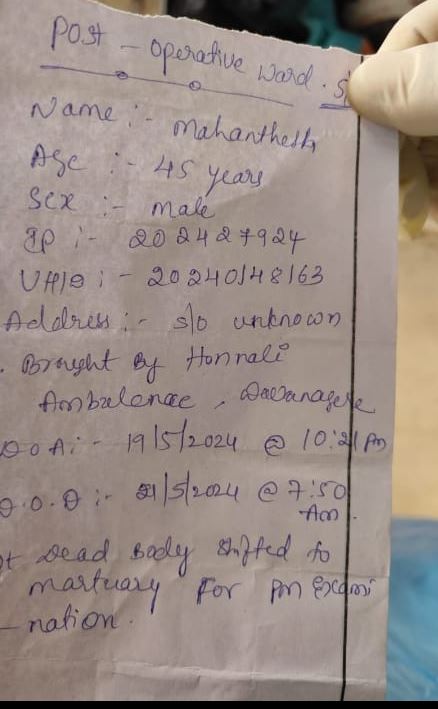 Post - Operative Ward. S
Name :- Mahanthesh
Age :- 45 years
Sex :- Male
IP :- 202427924
UHID :- 20240148163
Address :- s/o unknown
. Brought By Honnali
Ambulenae, Davanagere
DOA :- 19/5/2024 @ 10:21 Pm
D.O.D :- 21/5/2024 @ 7:50
Am.
Pt Dead Body Shifted to
martuary For pm Exami
- nation.